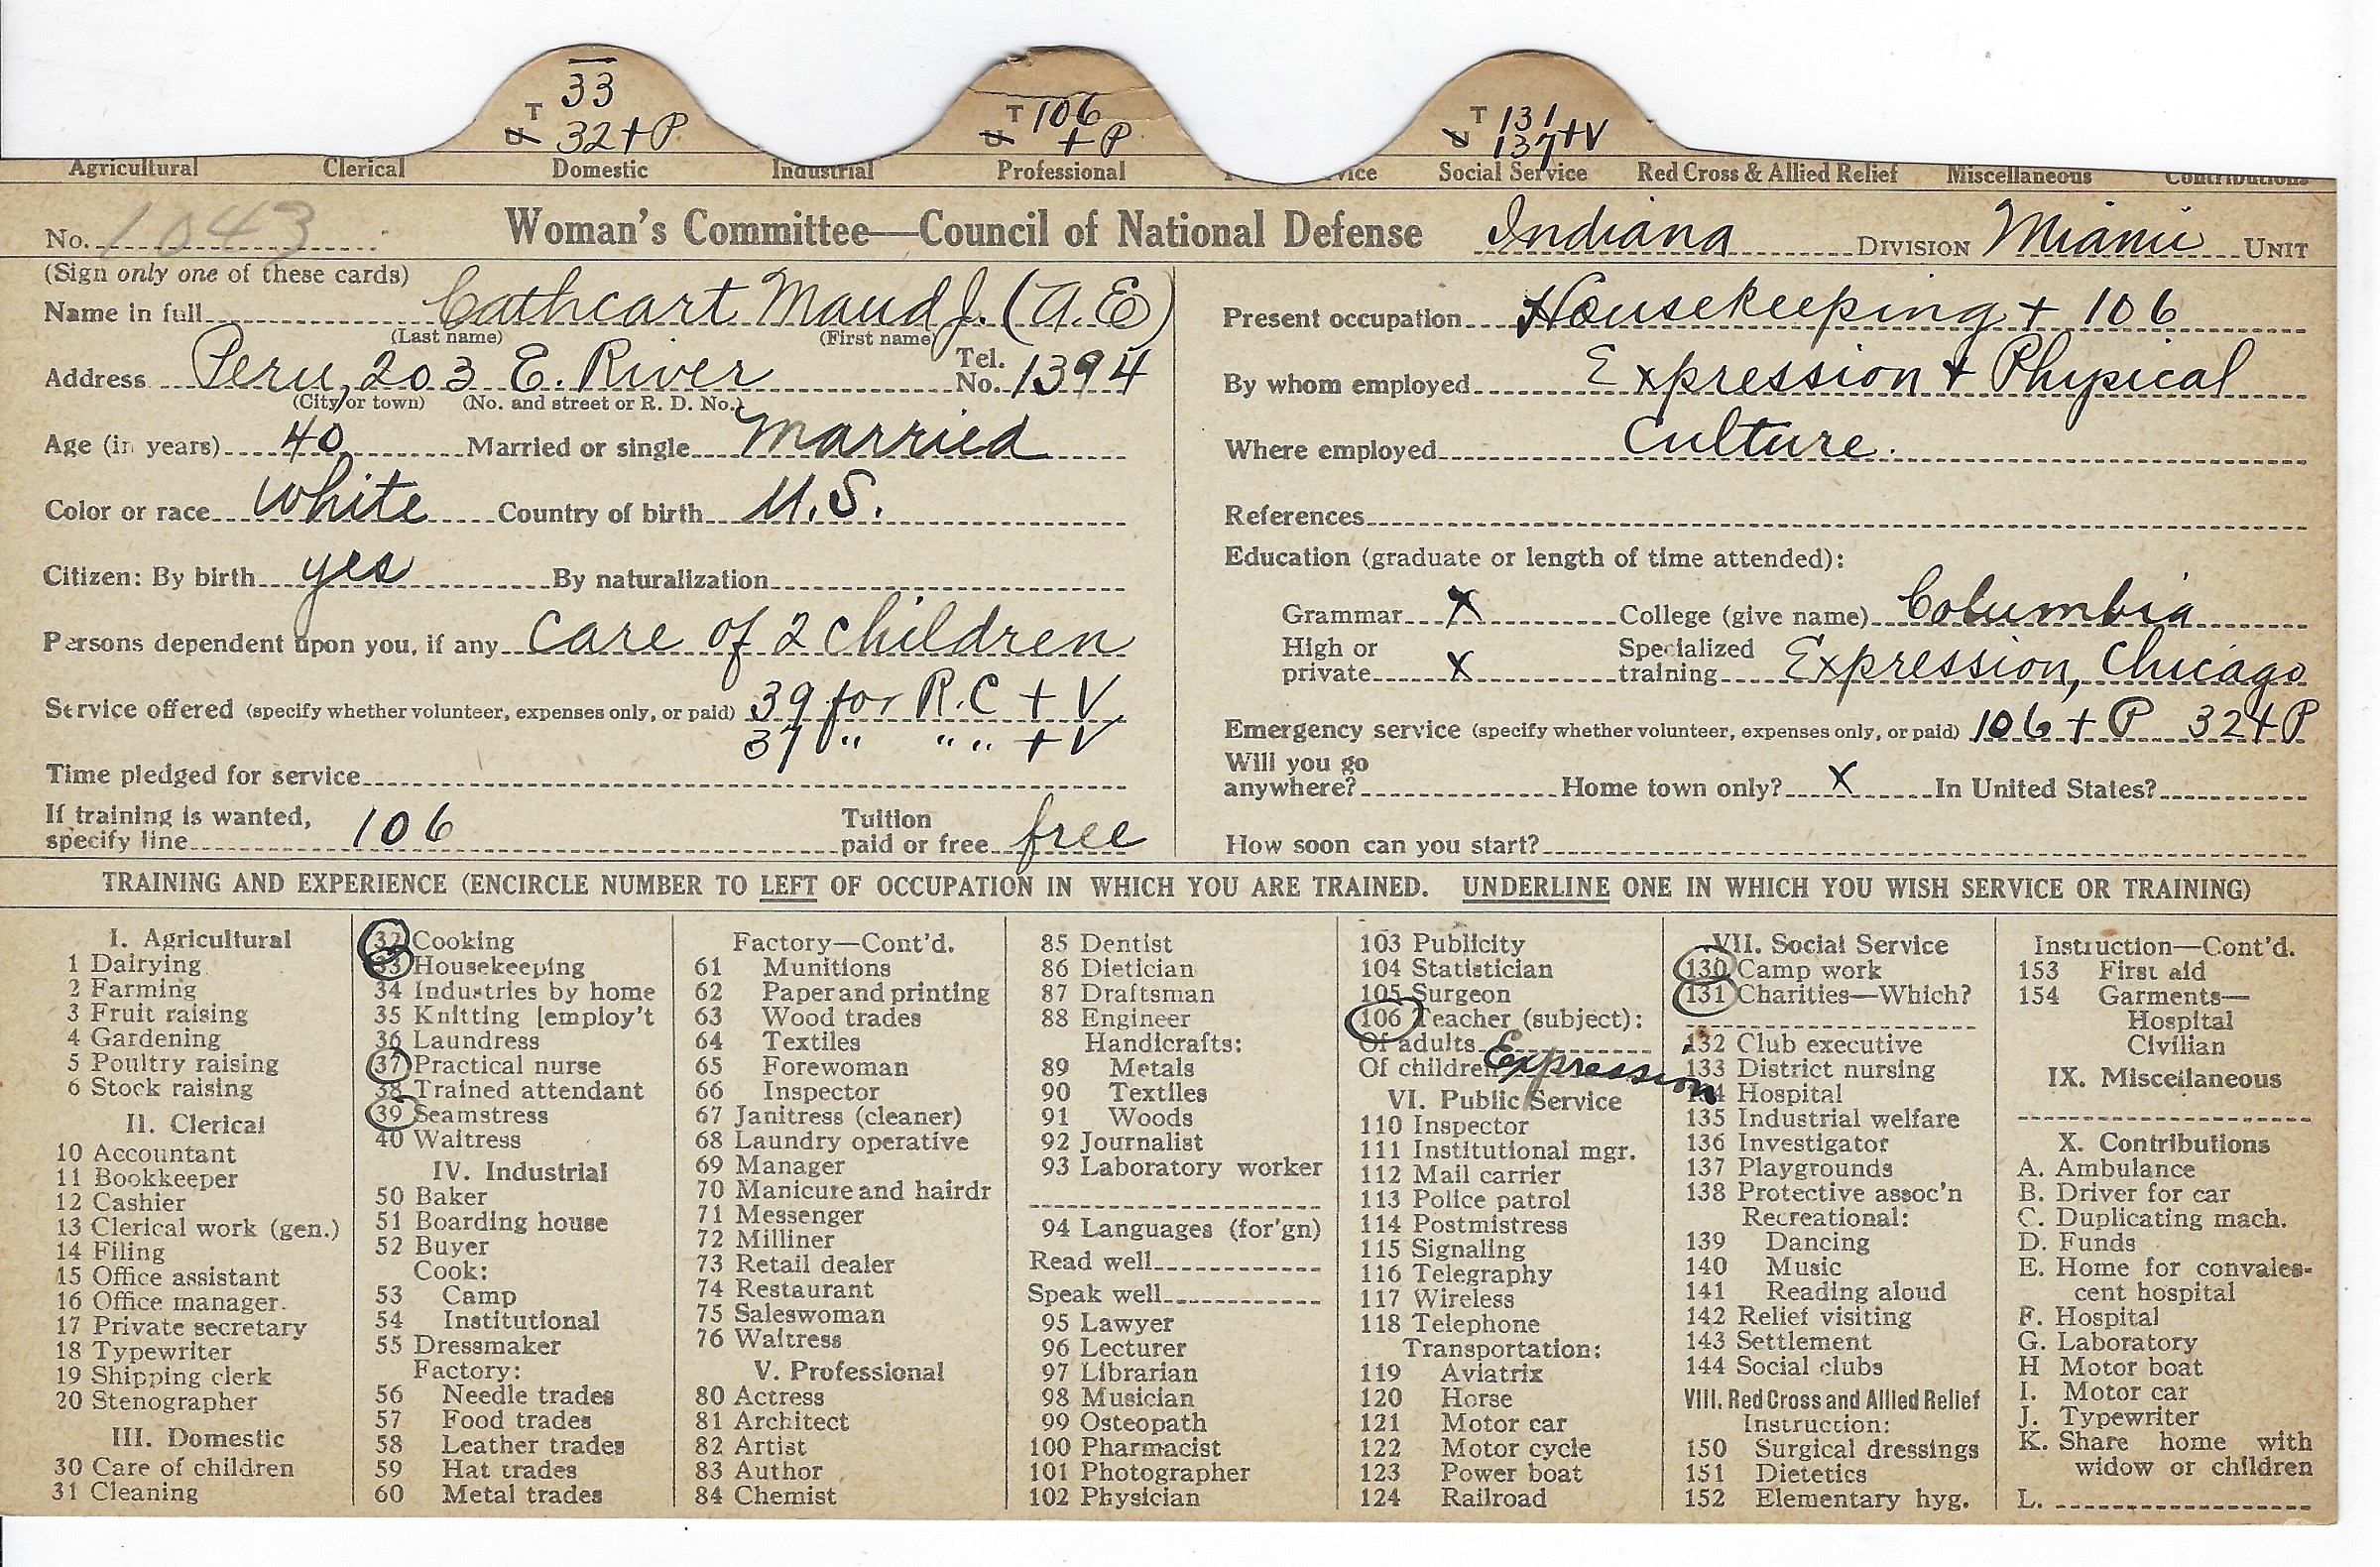 33
T
U 32+P
T 106
U +P
T 131
U 137+V
Agricultural Clerical Domestic Industrial Professional Social Service Red Cross & Allied Relief Miscellaneous Contributions
No. 1043 Woman's Committee—Council of National Defense Indiana DIVISION Miami UNIT
(Sign only one of these cards)
Name in full Cathcart Maud J. (A.E)
(Last name) (First name)
Address Peru, 203 E. River Tel. No. 1394
(City or town) (No. and street or R. D. No.)
Age (in years) 40 Married or single Married
Color or race White Country of birth U.S.
Citizen: By birth yes By naturalization
Persons dependent upon you, if any Care of 2 children
Service offered (specify whether volunteer, expenses only, or paid) 39 for R.C + V
37 " " " + V
Time pledged for service
If training is wanted, specify line 106 Tuition paid or free free
Present occupation Housekeeping + 106
By whom employed Expression & Physical
Where employed Culture.
References
Education (graduate or length of time attended):
Grammar X College (give name) Columbia
High or private X Specialized training Expression, Chicago
Emergency service (specify whether volunteer, expenses only, or paid) 106 + P 32+P
Will you go anywhere? Home town only? X In United States?
How soon can you start?
TRAINING AND EXPERIENCE (ENCIRCLE NUMBER TO LEFT OF OCCUPATION IN WHICH YOU ARE TRAINED. UNDERLINE ONE IN WHICH YOU WISH SERVICE OR TRAINING)
I. Agricultural
1 Dairying
2 Farming
3 Fruit raising
4 Gardening
5 Poultry raising
6 Stock raising
II. Clerical
10 Accountant
11 Bookkeeper
12 Cashier
13 Clerical work (gen.)
14 Filing
15 Office assistant
16 Office manager
17 Private secretary
18 Typewriter
19 Shipping clerk
20 Stenographer
III. Domestic
30 Care of children
31 Cleaning
32 Cooking
33 Housekeeping
34 Industries by home
35 Knitting [employ't
36 Laundress
37 Practical nurse
38 Trained attendant
39 Seamstress
40 Waitress
IV. Industrial
50 Baker
51 Boarding house
52 Buyer
Cook:
53 Camp
54 Institutional
55 Dressmaker
Factory:
56 Needle trades
57 Food trades
58 Leather trades
59 Hat trades
60 Metal trades
Factory—Cont'd.
61 Munitions
62 Paper and printing
63 Wood trades
64 Textiles
65 Forewoman
66 Inspector
67 Janitress (cleaner)
68 Laundry operative
69 Manager
70 Manicure and hairdr
71 Messenger
72 Milliner
73 Retail dealer
74 Restaurant
75 Saleswoman
76 Waitress
V. Professional
80 Actress
81 Architect
82 Artist
83 Author
84 Chemist
85 Dentist
86 Dietician
87 Draftsman
88 Engineer
Handicrafts:
89 Metals
90 Textiles
91 Woods
92 Journalist
93 Laboratory worker
94 Languages (for'gn)
Read well
Speak well
95 Lawyer
96 Lecturer
97 Librarian
98 Musician
99 Osteopath
100 Pharmacist
101 Photographer
102 Physician
103 Publicity
104 Statistician
105 Surgeon
106 Teacher (subject):
Of adults
Of children Expression
VI. Public Service
110 Inspector
111 Institutional mgr.
112 Mail carrier
113 Police patrol
114 Postmistress
115 Signaling
116 Telegraphy
117 Wireless
118 Telephone
Transportation:
119 Aviatrix
120 Horse
121 Motor car
122 Motor cycle
123 Power boat
124 Railroad
VII. Social Service
130 Camp work
131 Charities—Which?
132 Club executive
133 District nursing
134 Hospital
135 Industrial welfare
136 Investigator
137 Playgrounds
138 Protective assoc'n
Recreational:
139 Dancing
140 Music
141 Reading aloud
142 Relief visiting
143 Settlement
144 Social clubs
VIII. Red Cross and Allied Relief
Instruction:
150 Surgical dressings
151 Dietetics
152 Elementary hyg.
Instruction—Cont'd.
153 First aid
154 Garments—
Hospital
Civilian
IX. Miscellaneous
X. Contributions
A. Ambulance
B. Driver for car
C. Duplicating mach.
D. Funds
E. Home for convales-
cent hospital
F. Hospital
G. Laboratory
H Motor boat
I. Motor car
J. Typewriter
K. Share home with
widow or children
L.